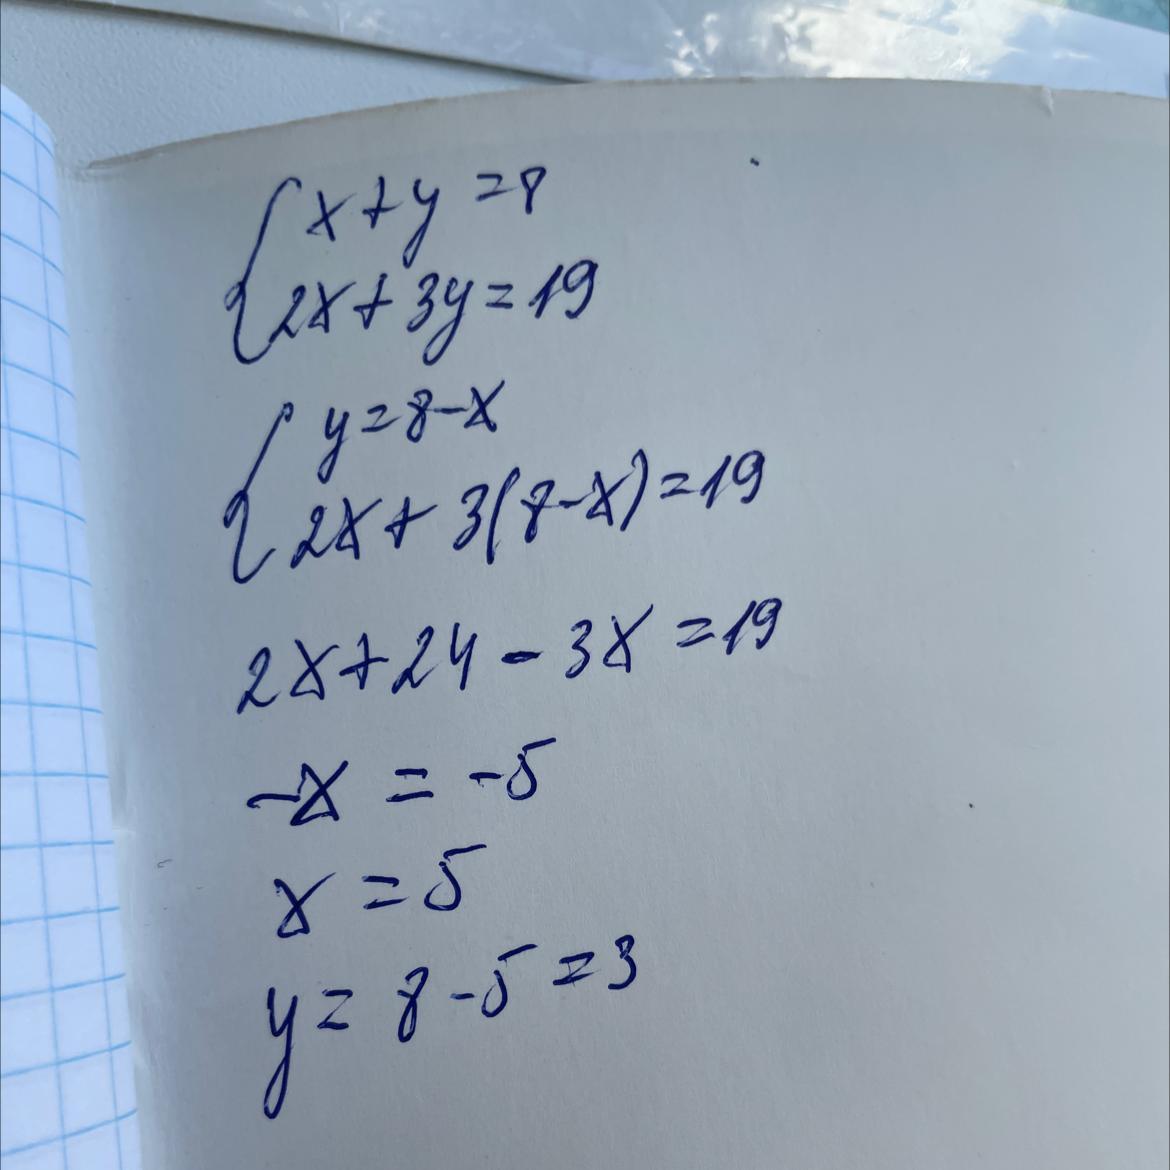 x+y=8
2x+3y=19
y=8-x
2x+3(8-x)=19
2x+24-3x=19
-x=-5
x=5
y=8-5=3